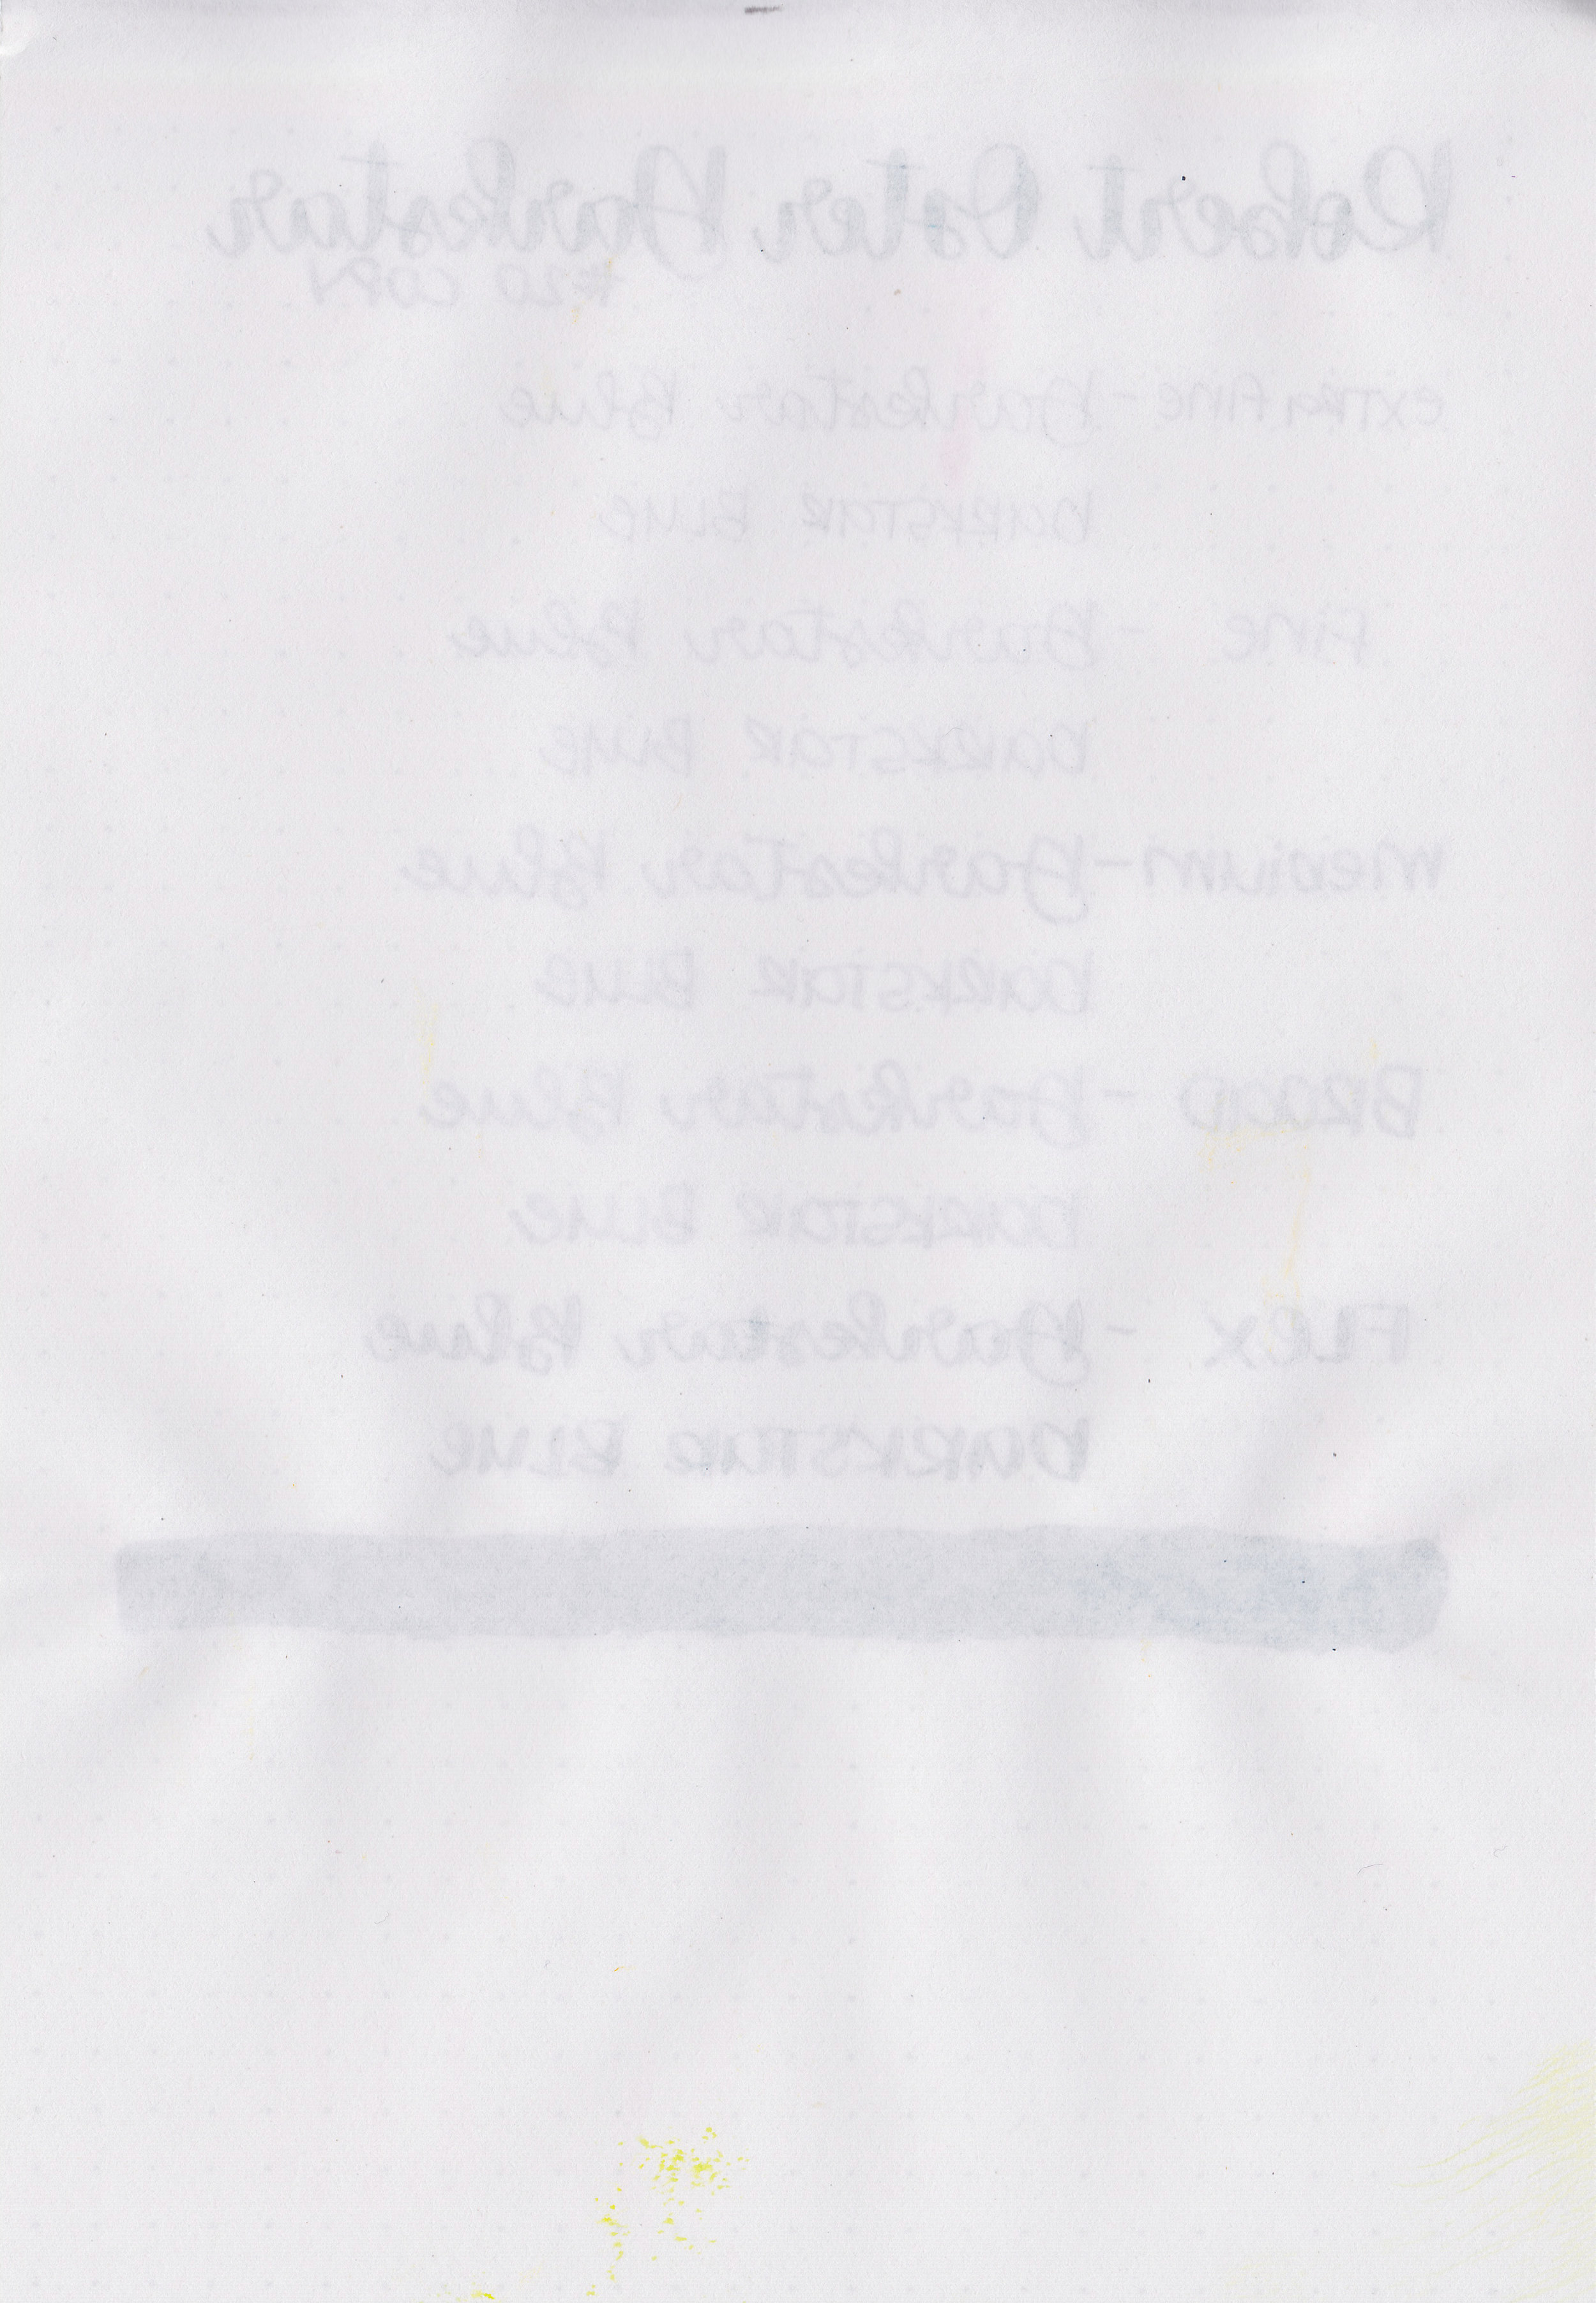 Robert Oster Darkstar
#20 COPY
EXTRA FINE - Darkstar Blue
DARKSTAR BLUE
FINE - Darkstar Blue
DARKSTAR BLUE
MEDIUM - Darkstar Blue
DARKSTAR BLUE
BROAD - Darkstar Blue
DARKSTAR BLUE
FLEX - Darkstar Blue
DARKSTAR BLUE